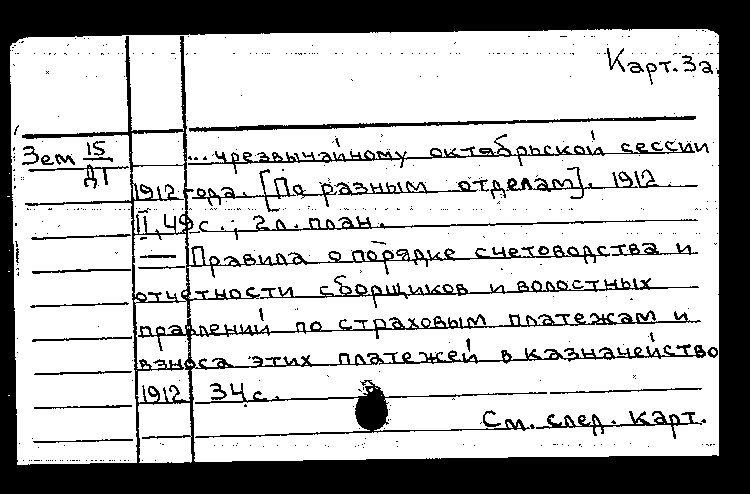 Карт. 3а.
Зем 15/Д1 ...чрезвычайному октябрьской сессии
1912 года. [По разным отделам]. 1912
II, 49 с.; 2 л. план.
— Правила о порядке счетоводства и
отчетности сборщиков и волостных
правлений по страховым платежам и
взноса этих платежей в казначейство
1912 34 с.
См. след. карт.